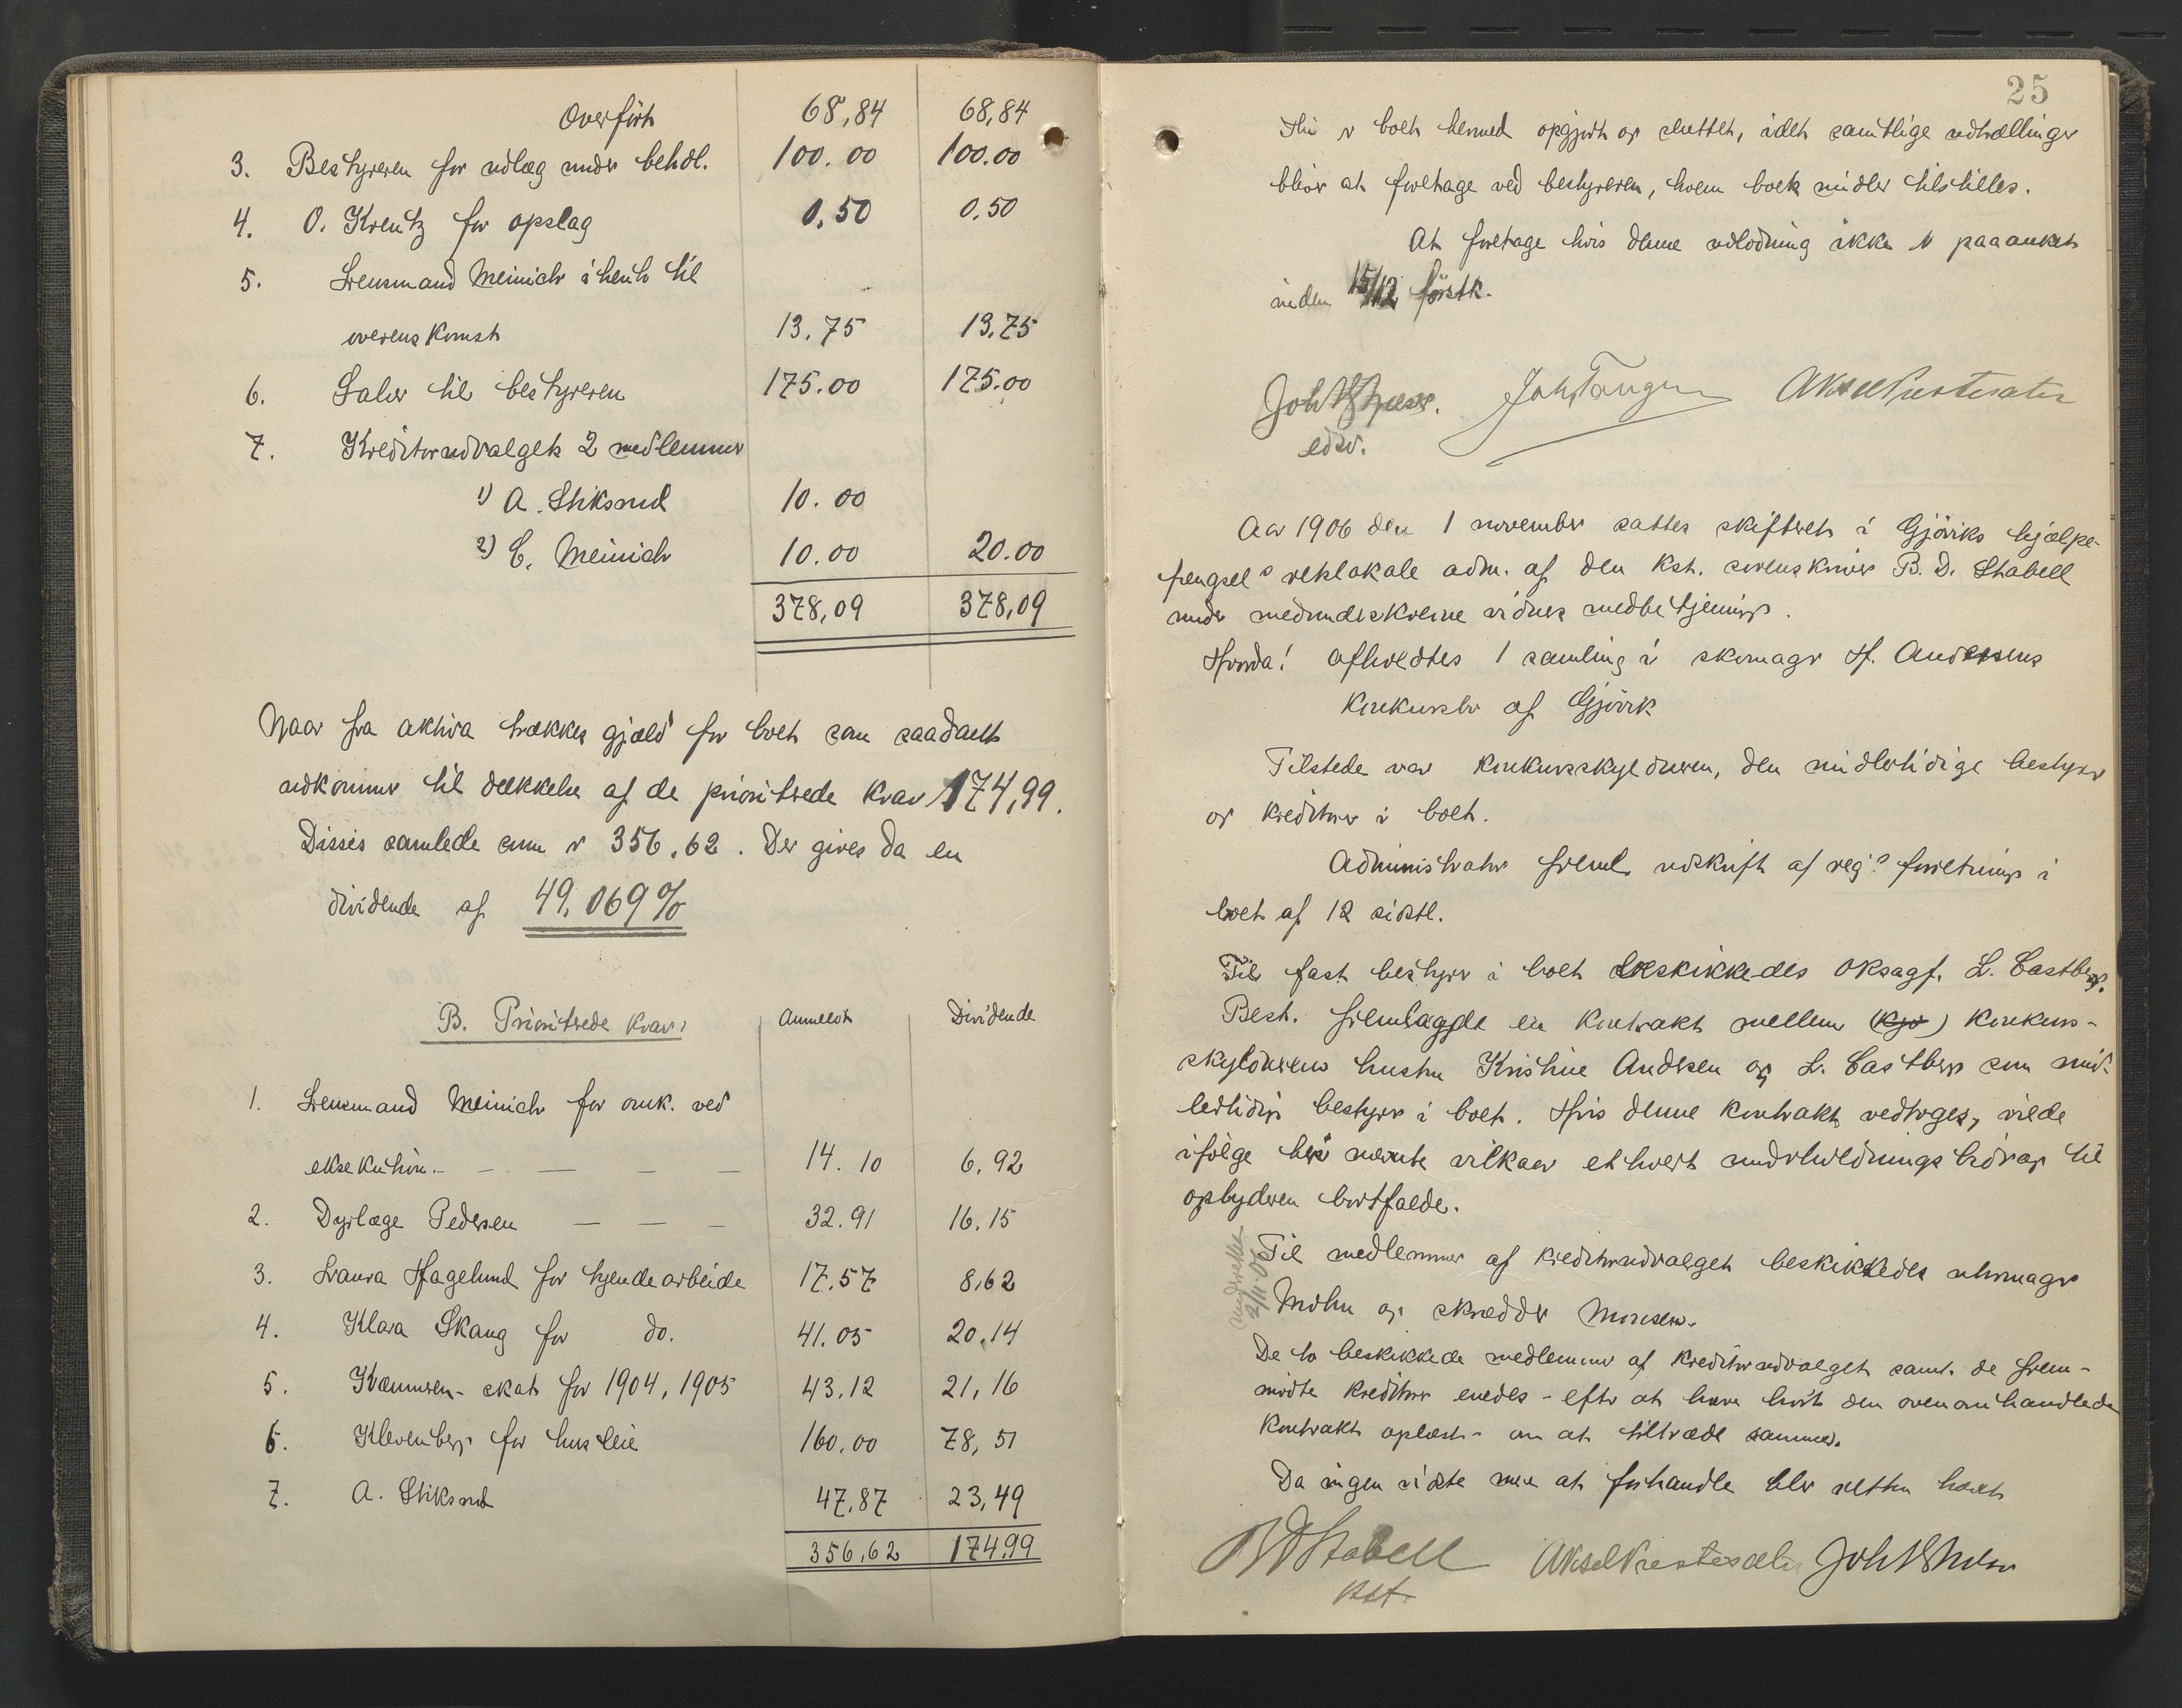 Overført 68,84 68,84
3. Bestyreren for udlæg under behdl. 100.00 100.00
4. O. Kreutz for opslag 0,50 0,50
5. Lensmand Meinich i henh. til
overenskomst 13,75 13,75
6. Salær til bestyreren 175.00 175.00
7. Kreditorudvalgets 2 medlemmer
1) A. Stiksrud 10.00
2) C. Meinich 10.00 20.00
378,09 378,09
Naar fra aktiva trækkes gjæld for boet som saadant
udkommer til dækkelse af de prioriterede krav 174,99.
Disses samlede sum er 356,62. Der gives da en
dividende af 49,069%
B. Prioriterede krav: Anmeldt Dividende
1. Lensmand Meinich for omk. ved
eksekution. — — — — 14.10 6,92
2. Dyrlæge Pedersen — — — 32.91 16.15
3. Laura Hagelund for syendearbeide 17.57 8,62
4. Klara Skaug for do. 41.05 20.14
5. Kæmneren - skat for 1904, 1905 43.12 21,16
6. Klevenberg for husleie 160.00 78,51
7. A. Stiksrud 47,87 23,49
356,62 174,99
25
Thi er boet hermed opgjort og sluttet, idet samtlige udtællinger
blir at foretage ved bestyreren, hvem boets midler tilstilles.
At foretage hvis denne udlodning ikke er paaanket
inden 15/12 førstk.
Joh Tangen Aksel Prestesæter
edsv.
Aar 1906 den 1 november sattes skifteret i Gjøviks hjælpe-
fengsels retslokale adm. af den kst. sorenskriver B. D. Stabell
under medunderskrevne vidners medbetjening.
Hvorda! afholdtes 1 samling i skomager H. Andersens
konkursbo af Gjøvik
Tilstede var konkursskyldneren, den midlertidige bestyrer
og kreditorer i boet.
Administrator freml. udskrift af reg.s forretning i
boet af 12 sidstl.
Til fast bestyrer i boet beskikkedes oksagf. L. Castberg.
Best. fremlagde en kontrakt mellem (kjø) konkurs-
skyldnerens hustru Kristine Andersen og L. Castberg som mid-
lertidig bestyrer i boet. Hvis denne kontrakt vedtoges, vilde
ifølge heri nævnte vilkaar ethvert underholdningsbidrag til
opbyderen bortfalde.
underrettet
2/11-06
Til medlemmer af kreditorudvalget beskikkedes uhrmager
Mohn og skrædder Monsen.
De to beskikkede medlemmer af kreditorudvalget samt de frem-
mødte kreditorer enedes - efter at have hørt den ovenomhandlede
kontrakt oplæst - om at tiltræde samme.
Da ingen vidste mere at forhandle blev retten hævet
B D Stabell Aksel Prestesæter
kst.